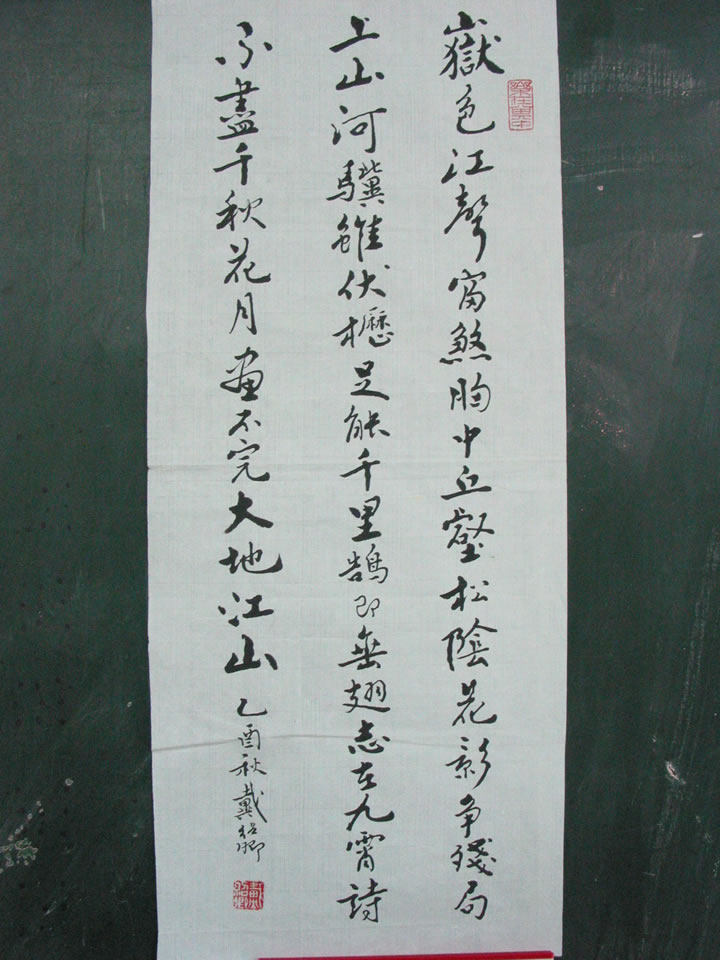 嶽色江聲富煞胸中丘壑松陰花影争殘局
上山河驥雖伏櫪足能千里鵠即垂翅志在九霄詩
不盡千秋花月畫不完大地江山
乙酉秋戴紹卿